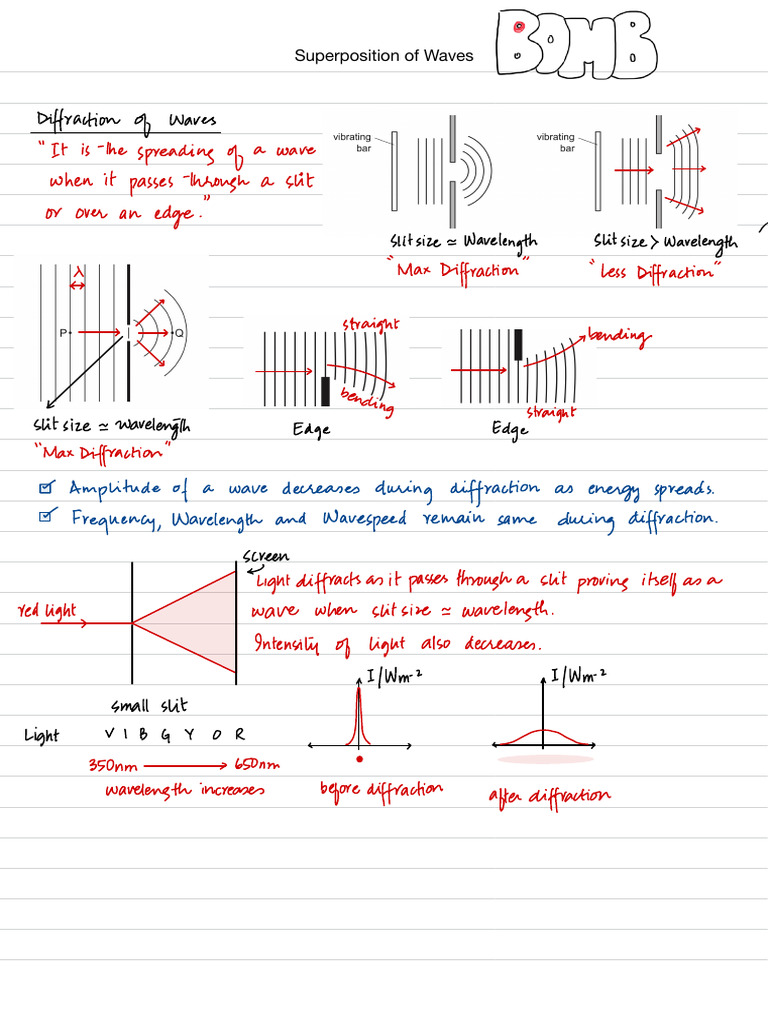 Superposition of Waves
BOMB
Diffraction of Waves
"It is the spreading of a wave
when it passes through a slit
or over an edge."
vibrating
bar
slit size ≃ Wavelength
"Max Diffraction"
vibrating
bar
slit size > Wavelength
"Less Diffraction"
λ
P
Q
slit size ≃ wavelength
"Max Diffraction"
straight
bending
Edge
bending
straight
Edge
☑ Amplitude of a wave decreases during diffraction as energy spreads.
☑ Frequency, Wavelength and Wavespeed remain same during diffraction.
screen
red light
small slit
Light diffracts as it passes through a slit proving itself as a
wave when slit size ≃ wavelength.
Intensity of light also decreases.
Light V I B G Y O R
350nm → 650nm
wavelength increases
I/Wm-2
before diffraction
I/Wm-2
after diffraction